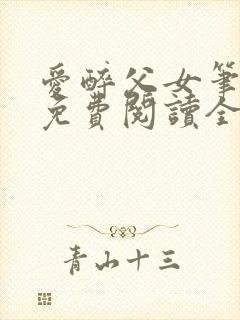 愛醉父女筆
免費閱讀全
青山十三